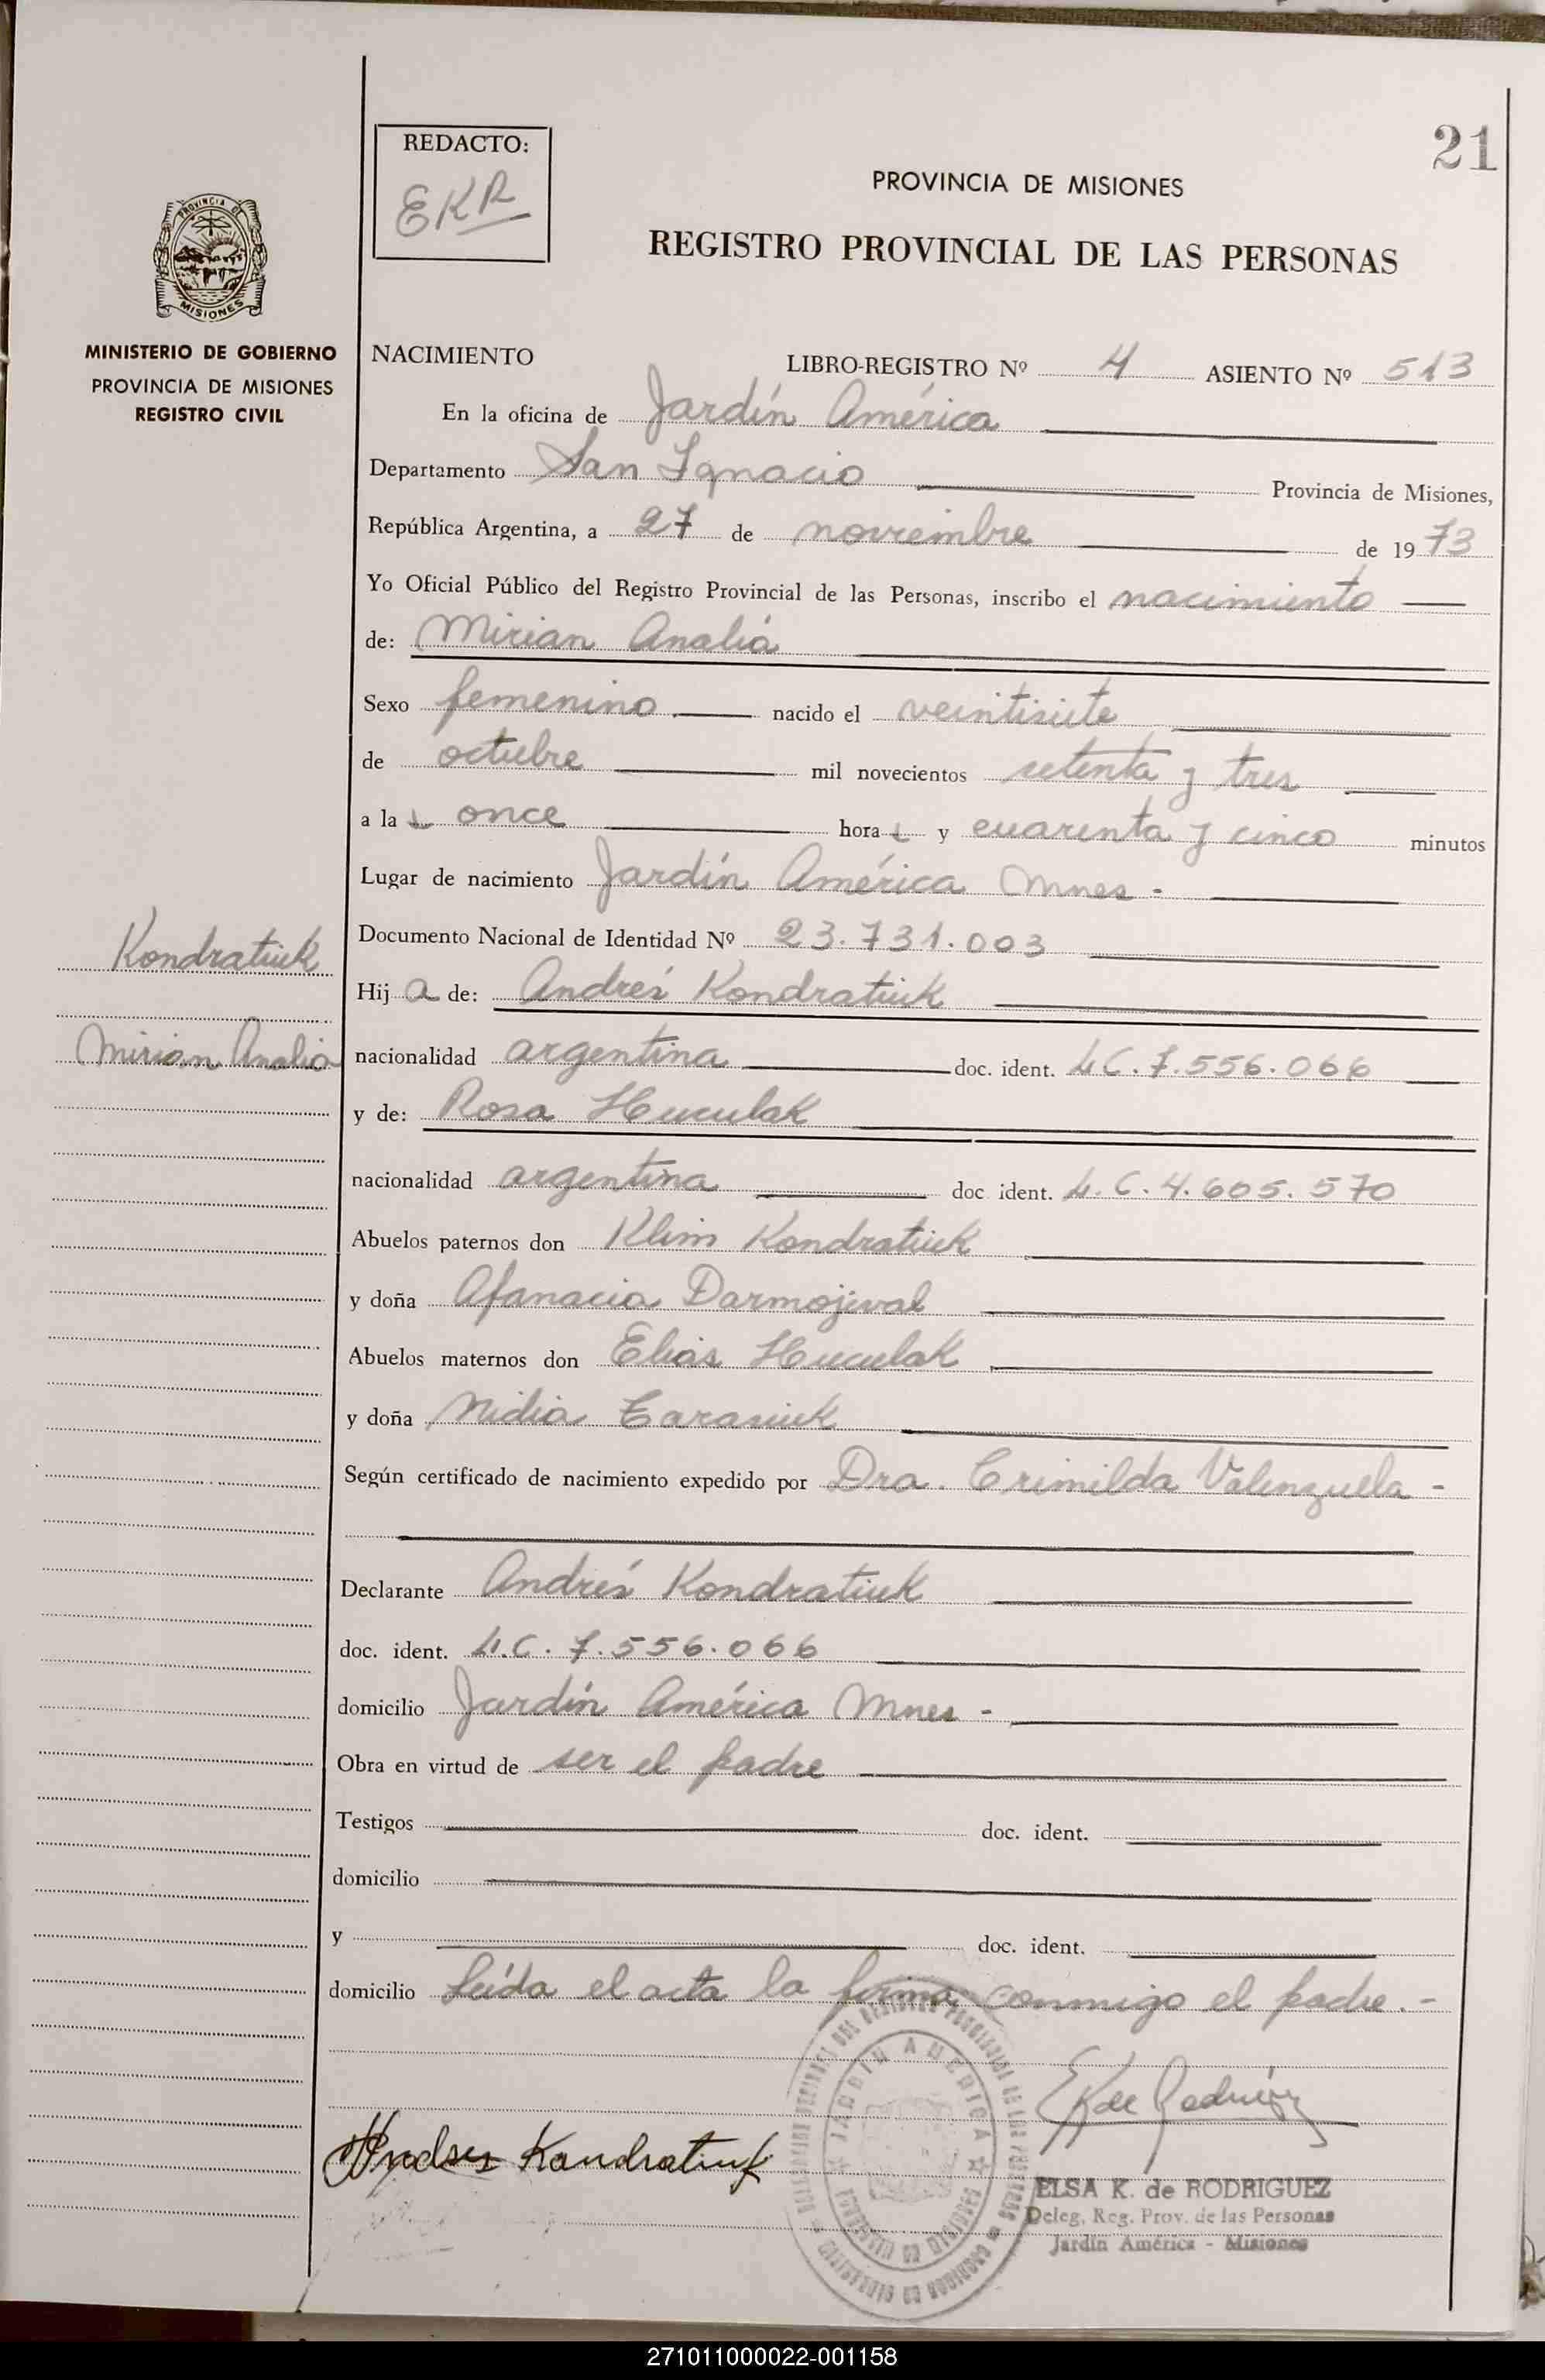 21
REDACTO:
EKR
PROVINCIA DE MISIONES
REGISTRO PROVINCIAL DE LAS PERSONAS
PROVINCIA DE
MISIONES
MINISTERIO DE GOBIERNO
PROVINCIA DE MISIONES
REGISTRO CIVIL
NACIMIENTO LIBRO-REGISTRO Nº 4 ASIENTO Nº 513
En la oficina de Jardín América
Departamento San Ignacio Provincia de Misiones,
República Argentina, a 27 de noviembre de 1973
Yo Oficial Público del Registro Provincial de las Personas, inscribo el nacimiento
de: Mirian Analía
Sexo femenino nacido el veintisiete
de octubre mil novecientos setenta y tres
a las once horas y cuarenta y cinco minutos
Lugar de nacimiento Jardín América Mnes -
Documento Nacional de Identidad Nº 23.731.003
Kondratiuk
Hija de: Andrés Kondratiuk
Mirian Analia
nacionalidad argentina doc. ident. L.C. 7.556.066
y de: Rosa Huculak
nacionalidad argentina doc. ident. L.C. 4.605.570
Abuelos paternos don Klim Kondratiuk
y doña Afanacia Darmojwal
Abuelos maternos don Elias Huculak
y doña Nidia Tarasiuk
Según certificado de nacimiento expedido por Dra. Crimilda Valenzuela -
Declarante Andrés Kondratiuk
doc. ident. L.C. 7.556.066
domicilio Jardín América Mnes -
Obra en virtud de ser el padre
Testigos doc. ident.
domicilio
y doc. ident.
domicilio Leída el acta la firma conmigo el padre.-
JARDIN AMERICA
EK de Rodriguez
Andres Kondratiuk
ELSA K. de RODRIGUEZ
Deleg. Reg. Prov. de las Personas
Jardín América - Misiones
271011000022-001158